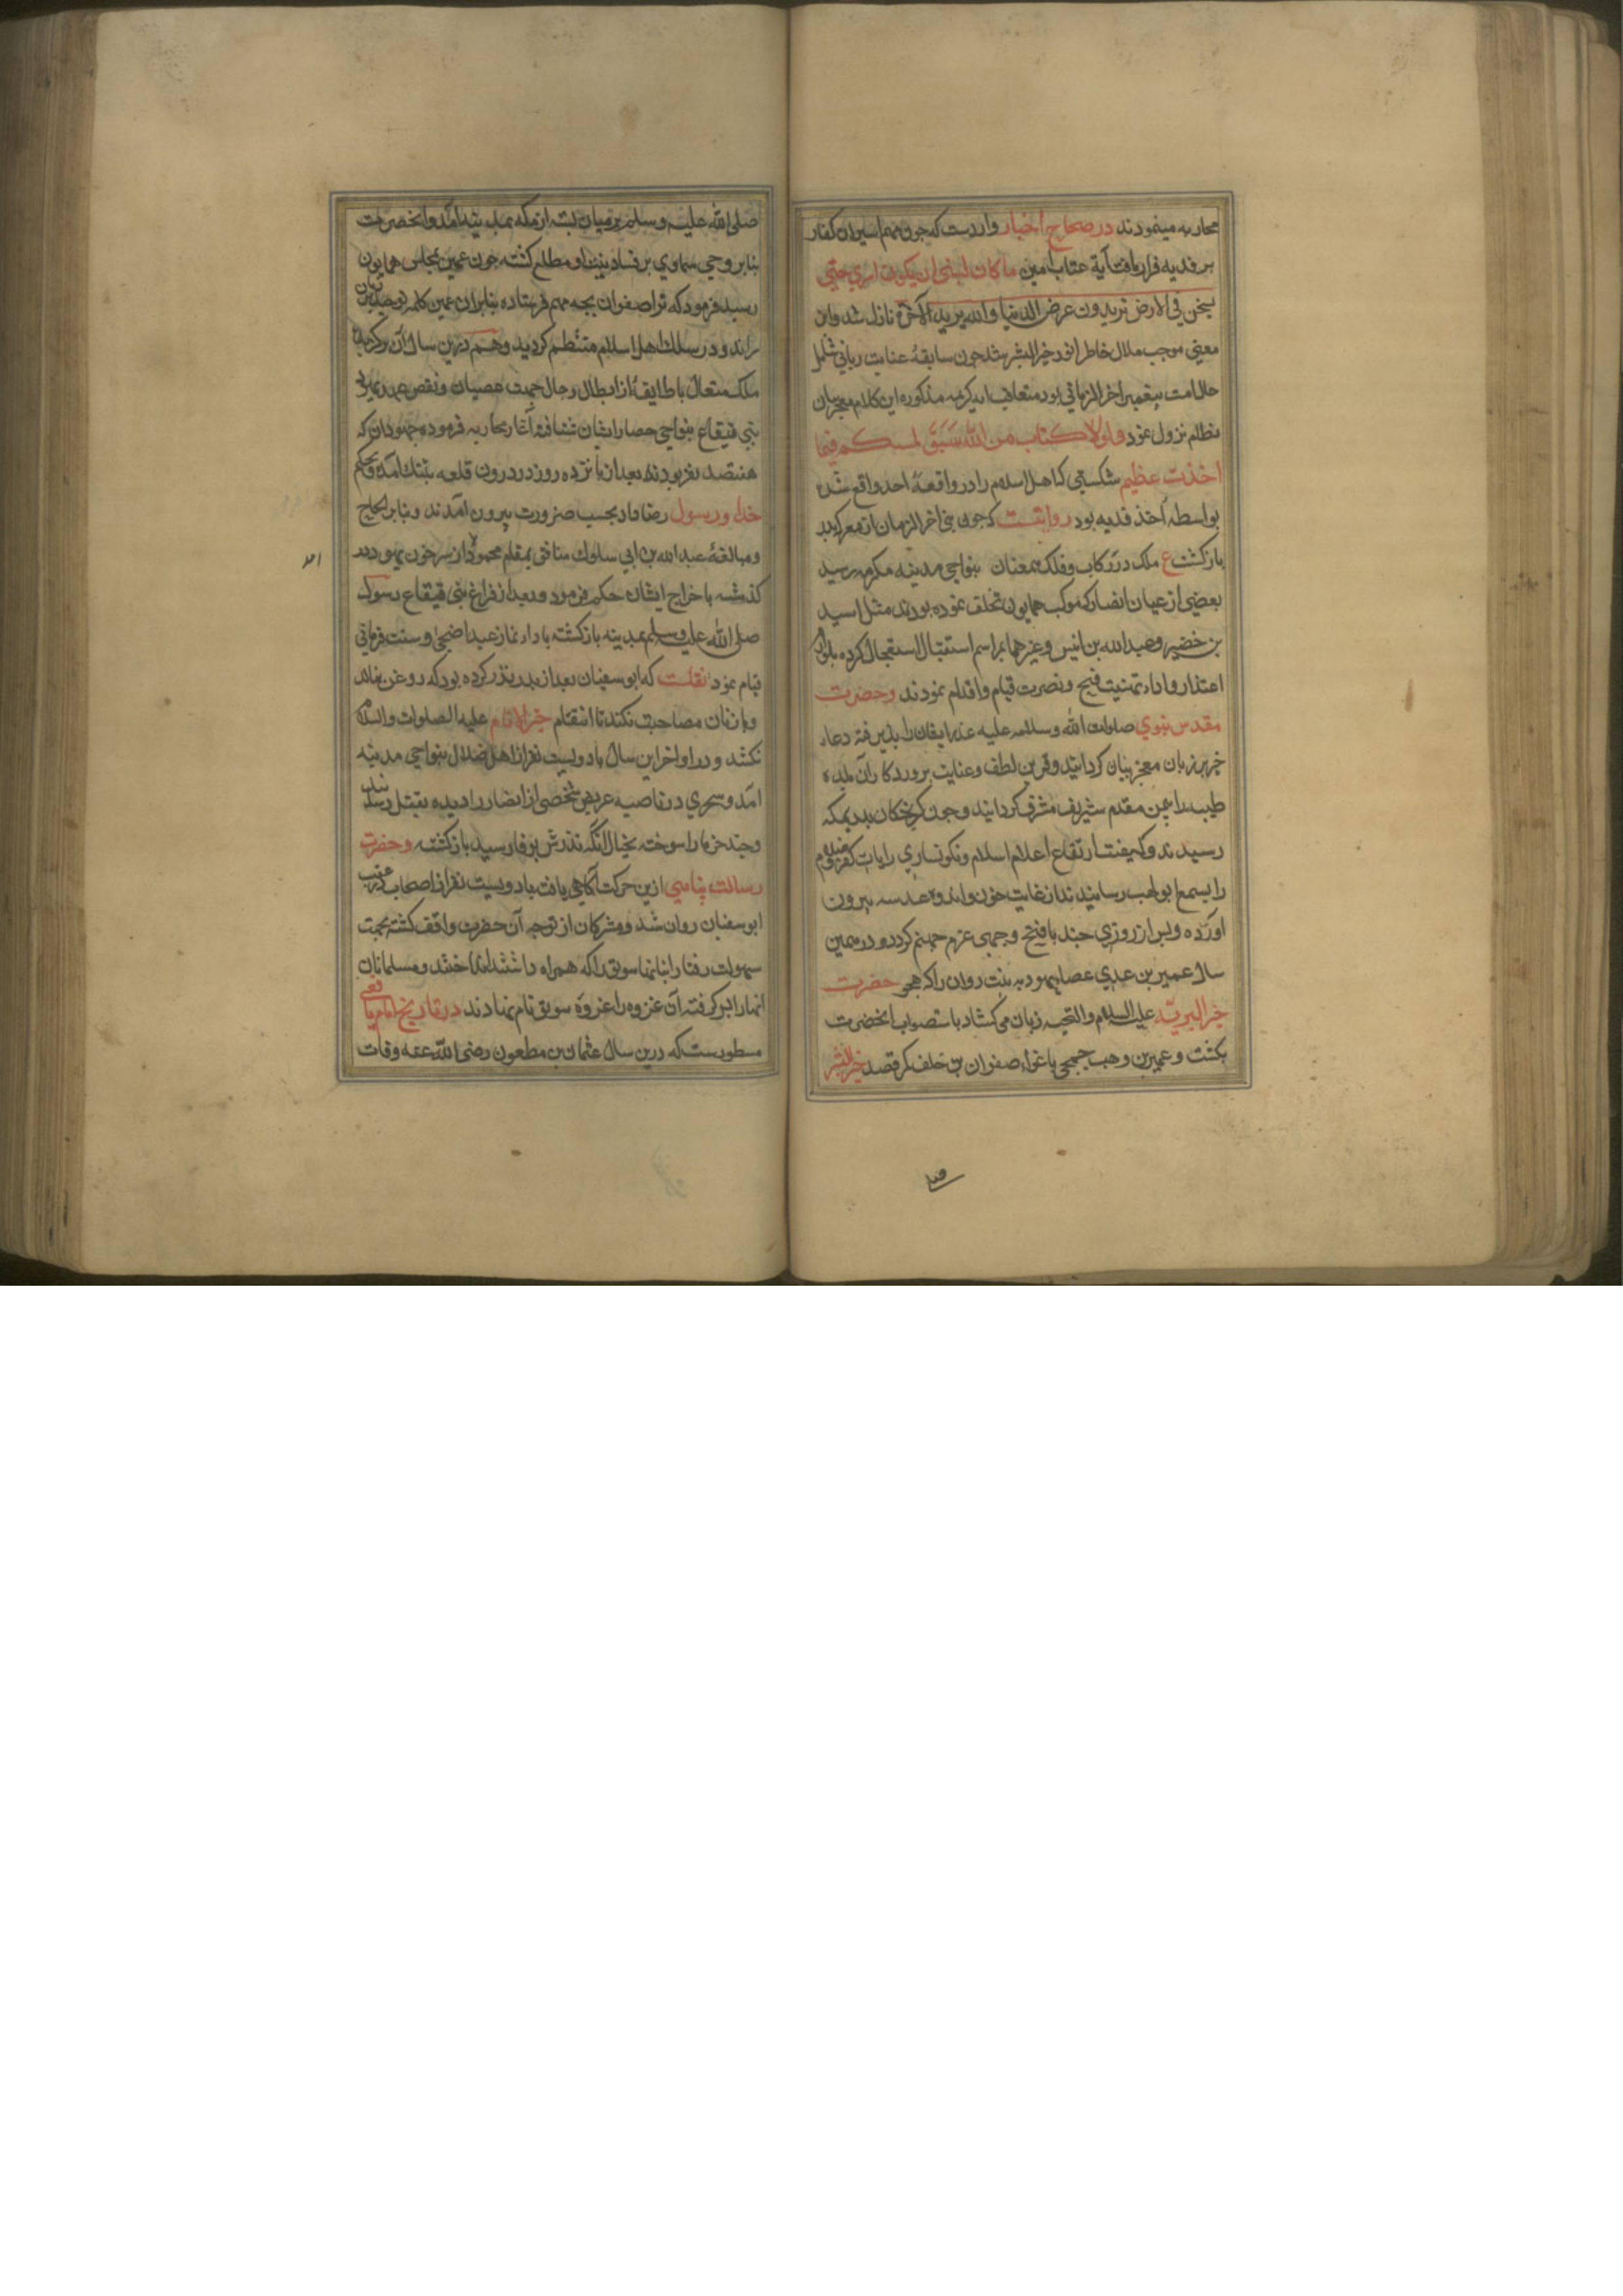 محاربه مینمودند در صحاح اخبار واردست که چون مهم اسیران کفار
بر فدیه قرار یافت آیة عتاب آمین ما کان لنبی ان یکون له اسری حتی
یثخن فی الارض تریدون عرض الدنیا والله یرید الآخرة نازل شد واین
معنی موجب ملال خاطر انور خیر البشر شد چون سابقهٔ عنایت ربانی شامل
حال امت پیغمبر آخر الزمانی بود متعاقب آیه کریمه مذکوره این کلام معجز بیان
نظام نزول نمود ولولا کتاب من الله سَبَقَ لمسکم فیما
اخذت عظیم شکستی که اهل اسلام را در واقعهٔ احد واقع شد
بواسطه اخذ فدیه بود روایتست که چون نبی آخر الزمان از معرکه بدر
بازگشت ع ملک در رکاب وفلک همعنان بنواحی مدینه مکرمه رسید
بعضی از اعیان انصار که از موکب همایون تخلف نموده بودند مثل اسید
بن خضیر وعبدالله بن انیس وغیرهما بمراسم استقبال استعجال کرده بلوازم
اعتذار واداء تهنیت فتح ونصرت قیام واقدام نمودند وحضرت
مقدس نبوی صلوات الله وسلامه علیه عذر ایشان را پذیرفته دعاء
خیر بر زبان معجز بیان گردانید وقرین لطف وعنایت پروردکار آن بلده
طیبه را بیمن مقدم شریف مشرف گردانید وچون گریختگان بدر بمکه
رسیدند وکیفیت ارتفاع اعلام اسلام ونکونساری رایات کفر وظلام
را بسمع ابولهب رسانیدند از غایت حزن واندوه عدسه بیرون
آورده وپس از روزی چند با فتح وجهی عزم جهنم کرد ودر همین
سال عمیر بن عدی عصاء یهودیه بنت مروان را که بهجو حضرت
خیر البریه علیه السلام والتحیه زبان می‌گشاد باستصواب آنحضرت
بکشت وعمیر بن وهب جمحی باغواء صفوان بن خلف کمر قصد خیر البشر
صلی الله علیه وسلم بر میان بسته از مکه بمدینه آمد وآنحضرت
بنا بر وحی سماوی بر فساد نیت او مطلع گشته چون عمیر بمجلس همایون
رسید فرمود که ترا صفوان بجه مهم فرستاده بنابران عمیر کلمه توحید بر زبان
راند ودر سلک اهل اسلام منتظم گردید وهم درین سال آن برگزیدهٔ
ملک متعال با طایفهٔ از ابطال رجال جهت عصیان ونقض عهد یهود
بنی قینقاع بنواحی حصار ایشان شتافته آغاز محاربه فرمود وجهودان که
هفتصد نفر بودند بعد از پانزده روز در درون قلعه بتنک آمده وبحکم
خدا ورسول رضا داده بحسب ضرورت بیرون آمدند وبنا بر الحاح
ومبالغهٔ عبدالله بن ابی سلول منافق بمقام محمود از سر خون یهود در
گذشته باخراج ایشان حکم فرمود وبعد از فراغ بنی قینقاع رسول
صلی الله علیه وسلم بمدینه بازگشته باداء نماز عید اضحی وسنت قربانی
قیام نمود نقلست که ابوسفیان بعد از بدر نذر کرده بود که روغن نمالد
وبا زنان مصاحبت نکند تا انتقام خیر الانام علیه الصلوات والسلام
نکشد ودر اواخر این سال با دویست نفر از اهل ضلال بنواحی مدینه
آمد وسحری در ناحیه عریض شخصی از انصار را دیده بقتل رسانید
وچند خرما را سوخته بخیال آنکه نذرش بر وفا رسید بازگشته وحضرت
رسالت پناهی ازین حرکت آگاهی یافته با دویست نفر از اصحاب در عقب
ابوسفیان روان شد ومشرکان از توجه آن حضرت واقف گشته بجهت
سهولت رفتار انبانهای سویق را که همراه داشتند انداختند ومسلمانان
آنها را برگرفته آن غزوه را غزوه سویق نام نهادند در تاریخ امام یافعی
مسطورست که درین سال عثمان بن مظعون رضی الله عنه وفات